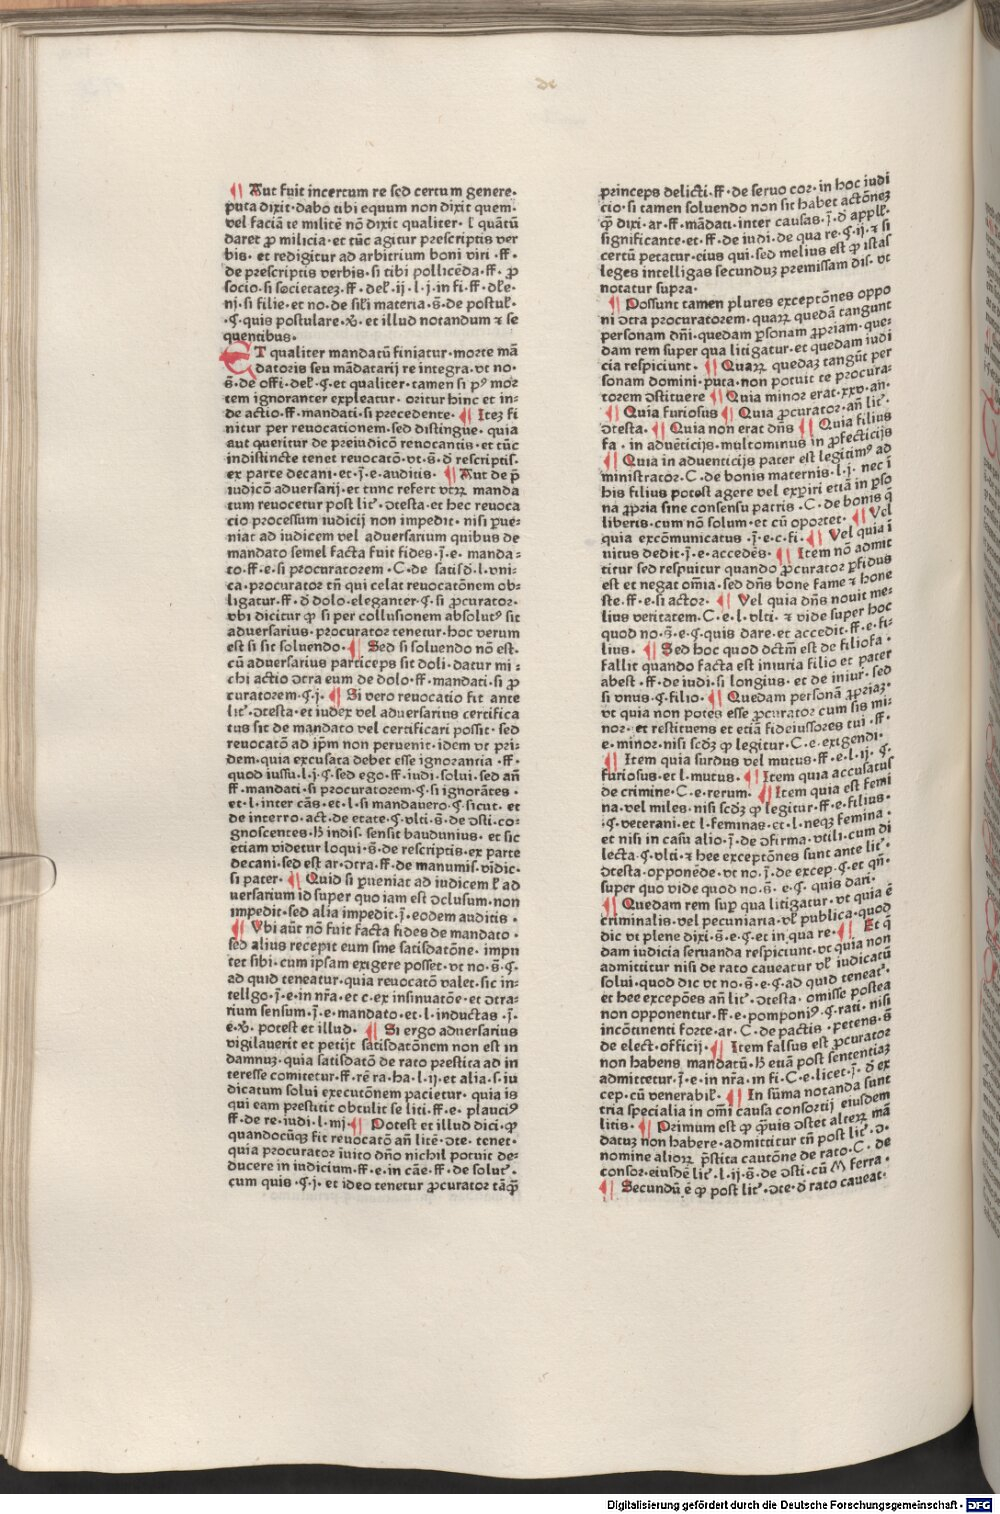 de
¶ Aut fuit incertum re sed certum genere·
puta dixit·dabo tibi equum non dixit quem·
vel faciā te militē nō dixit qualiter· ł quātū
daret ꝓ milicia·et tūc agitur prescriptis ver
bis· et redigitur ad arbitrium boni viri ·ff·
de prescriptis verbis·si tibi pollicēda·ff· ꝓ
socio·si societatez·ff· del̕·ij·l·j·in fi·ff·dl̕e·
nj·si filie·et no·de sil̕i materia·s̄·de postul̕·
·ꝯ·quis postulare·xͦ· et illud notandum ⁊ se
quentibus·
ET qualiter mandatū finiatur·morte mā
datoris seu mādatarij re integra·vt no·
s̄·de offi·del̕·ꝯ·et qualiter·tamen si pꝰ mor
tem ignoranter expleatur· oritur hinc et in⸗
de actio·ff·mandati·si precedente· ¶ Itez fi
nitur per reuocationem·sed distingue· quia
aut queritur de preiudicō reuocantis·et tūc
indistincte tenet reuocatō·vt·s̄·d̄ rescriptis·
ex parte decani·et·j̄·e·auditis· ¶ Aut de p̄
iudicō aduersarij·et tunc refert vtꝝ manda
tum reuocetur post lit̕·ↄtesta·et hec reuoca
cio processum iudicij non impedit· nisi ꝑue⸗
niat ad iudicem vel aduersarium quibus de
mandato semel facta fuit fides·j̄·e· manda⸗
to·ff·e·si procuratorem·C·de satisd̄·l·vni⸗
ca·procurator tn̄ qui celat reuocatōnem ob⸗
ligatur·ff·d̄ dolo·eleganter·ꝯ·si ꝓcurator·
vbi dicitur ꝙ si per collusionem absolutꝰ sit
aduersarius·procurator tenetur·hoc verum
est si sit soluendo· ¶ Sed si soluendo nō est·
cū aduersarius particeps sit doli·datur mi⸗
chi actio ↄtra eum de dolo·ff·mandati·si ꝓ
curatorem·ꝯ·j· ¶ Si vero reuocatio fit ante
lit̕·ↄtesta·et iudex vel aduersarius certifica
tus sit de mandato vel certificari possit·sed
reuocatō ad ip̄m non peruenit·idem vt pri⸗
dem·quia excusata debet esse ignorantia ·ff·
quod iussu·l·j·ꝯ·sed ego·ff·iudi·solui·sed an̄
ff·mandati·si procuratorem·ꝯ·si ignorātes·
et·l·inter cās·et·l·si mandauero·ꝯ·sicut· et
de interro·act·de etate·ꝯ·vlti·s̄·de ↄsti·co⸗
gnoscentes·ꝶ indis· sensit baudunius· et sic
etiam videtur loqui·s̄·de rescriptis·ex parte
decani·sed est ar·ↄtra·ff·de manumis·vīdic·
si pater· ¶ Quid si ꝑueniat ad iudicem ł ad
uersarium id super quo iam est ↄclusum·non
impedit·sed alia impedit·j̄·eodem auditis·
¶ Vbi aūt nō fuit facta fides de mandato·
sed alius recepit eum sine satisdatōne· impu
tet sibi·cum ipsam exigere posset·vt no·s̄·ꝯ·
ad quid teneatur·quia reuocatō valet·sic in⸗
tellgo·j̄·e·in nr̄a·et c·ex insinuatōe·et ↄtra⸗
rium sensum·j̄·e·mandato·et·l·inductas·j̄·
e·xͦ· potest et illud· ¶ Si ergo aduersarius
vigilauerit et petijt satisdatōnem non est in
damnuz·quia satisdatō de rato prestita ad in
teresse comitetur·ff·rē ra·ha·l·ij·et alia·s·iu
dicatum solui executōnem pacietur· quia is
qui eam prestitit obtulit se liti·ff·e· plauciꝰ
ff·de re·iudi·l·mj· ¶ Potest et illud dici·ꝙ
quandocūqꝫ fit reuocatō an̄ litē·ↄte· tenet·
quia procurator īuito dn̄o nichil potuit de⸗
ducere in iudicium·ff·e·in cāe·ff·de solut̕·
cum quis·ꝯ·j· et ideo tenetur ꝓcurator tāqꝫ̄
princeps delicti·ff·de seruo cor·in hoc iudi
cio·si tamen soluendo non sit habet actōnez
ꝙ̄ dixi·ar·ff·mādati·inter causas·j̄·d̄ appll̕·
significante·et·ff·de iudi·de qua re·ꝯ·ij·⁊ si
certū petatur·eius qui·sed melius est ꝙ istas
leges intelligas secunduꝫ premissam dis·vt
notatur supra·
¶ Possunt tamen plures exceptōnes oppo
ni ↄtra procuratorem·quaꝝ quedā tangunt
personam dn̄i·quedam ꝑsonam ꝓpriam·que⸗
dam rem super qua litigatur·et quedam iudi
cia respiciunt· ¶ Quaꝝ quedaz tangūt per
sonam domini·puta·non potuit te procura⸗
torem ↄstituere ¶ Quia minor erat·xxv·an·
¶ Quia furiosus ¶ Quia ꝓcurator·an̄ lit̕·
ↄtesta· ¶ Quia non erat dn̄s ¶ Quia filius
fa· in aduēticijs·multominus in ꝓfecticijs
¶ Quia in aduenticijs pater est legitimꝰ ad
ministrator·C·de bonis maternis·l·j· nec ī
his filius potest agere vel exꝑiri etiā in ꝑso
na ꝓpria sine consensu patris·C·de bonis q̄
liberis·cum nō solum·et cū oportet· ¶ Vel
quia excōmunicatus·j̄·e·c·fi· ¶ Vel quia ī
uitus dedit·j̄·e·accedēs· ¶ Item nō admit
titur sed respuitur quando ꝓcurator ꝑfidus
est et negat om̄ia·sed dn̄s bone fame ⁊ hone
ste·ff·e·si actor· ¶ Vel quia dn̄s nouit me⸗
lius veritatem·C·e·l·vlti· ⁊ vide super hoc
quod no·s̄·e·ꝯ·quis dare·et accedit·ff·e·fi⸗
lius· ¶ Sed hoc quod dc̄tm̄ est de filiofa·
fallit quando facta est iniuria filio et pater
abest·ff·de iudi·si longius·et de iniur̕·sed
si vnus·ꝯ·filio· ¶ Quedam personā ꝓpriaz·
vt quia non potes esse ꝓcurator cum sis mi⸗
nor·et restituens et etiā fideiussores tui·ff·
e·minor·nisi scd̄ꝫ ꝙ legitur·C·e·exigendi·
¶ Item quia surdus vel mutus·ff·e·l·ij·ꝯ·
furiosus·et l·mutus· ¶ Item quia accusatus
de crimine·C·e·rerum· ¶ Item quia est femi
na·vel miles·nisi scd̄ꝫ ꝙ legitur·ff·e·filius·
·ꝯ·veterani·et l·feminas·et·l·neqꝫ femina·
et nisi in casu alio·j̄·de ↄfirma·vtili·cum di
lecta·ꝯ·vlti·⁊ hee exceptōnes sunt ante lit̕·
ↄtesta·opponēde·vt no·j̄·de excep·ꝯ·et qn̄·
super quo vide quod no·s̄· e·ꝯ· quis dari·
¶ Quedam rem suꝑ qua litigatur·vt quia ē
criminalis·vel pecuniaria·vl̕ publica·quod
dic vt plene dixi·s̄·e·ꝯ·et in qua re· ¶ Et q̄
dam iudicia seruanda respiciunt·vt quia non
admittitur nisi de rato caueatur vl̕ iudicatū
solui·quod dic vt no·s̄·e·ꝯ·ad quid teneat̕·
et hee excepōes an̄ lit̕·ↄtesta·omisse postea
non opponentur·ff·e·pomponiꝰ·ꝯ·rati·nisi
incōtinenti forte·ar·C·de pactis·petens·s̄
de elect·officij· ¶ Item falsus est ꝓcurator
non habens mandatū·ꝶ etiā post sententiaz
admittetur·j̄·e·in nr̄a·in fi·C·e·licet·j̄·d̄ ex
cep·cū venerabil̕· ¶ In sūma notanda sunt
tria specialia in om̄i causa consortij eiusdem
litis· ¶ Primum est ꝙ q̄uis ↄstet alteꝝ mā
datuꝫ non habere·admittitur tn̄ post lit̕·ↄ·
nomine alioꝝ p̄stita cautōne de rato·C·de
consor·eiusdē lit̕·l·ij·s̄·de ↄsti·cū M ferra·
¶ Secundū ē ꝙ post lit̕·ↄte·d̄ rato caueat·
Digitalisierung gefördert durch die Deutsche Forschungsgemeinschaft · DFG